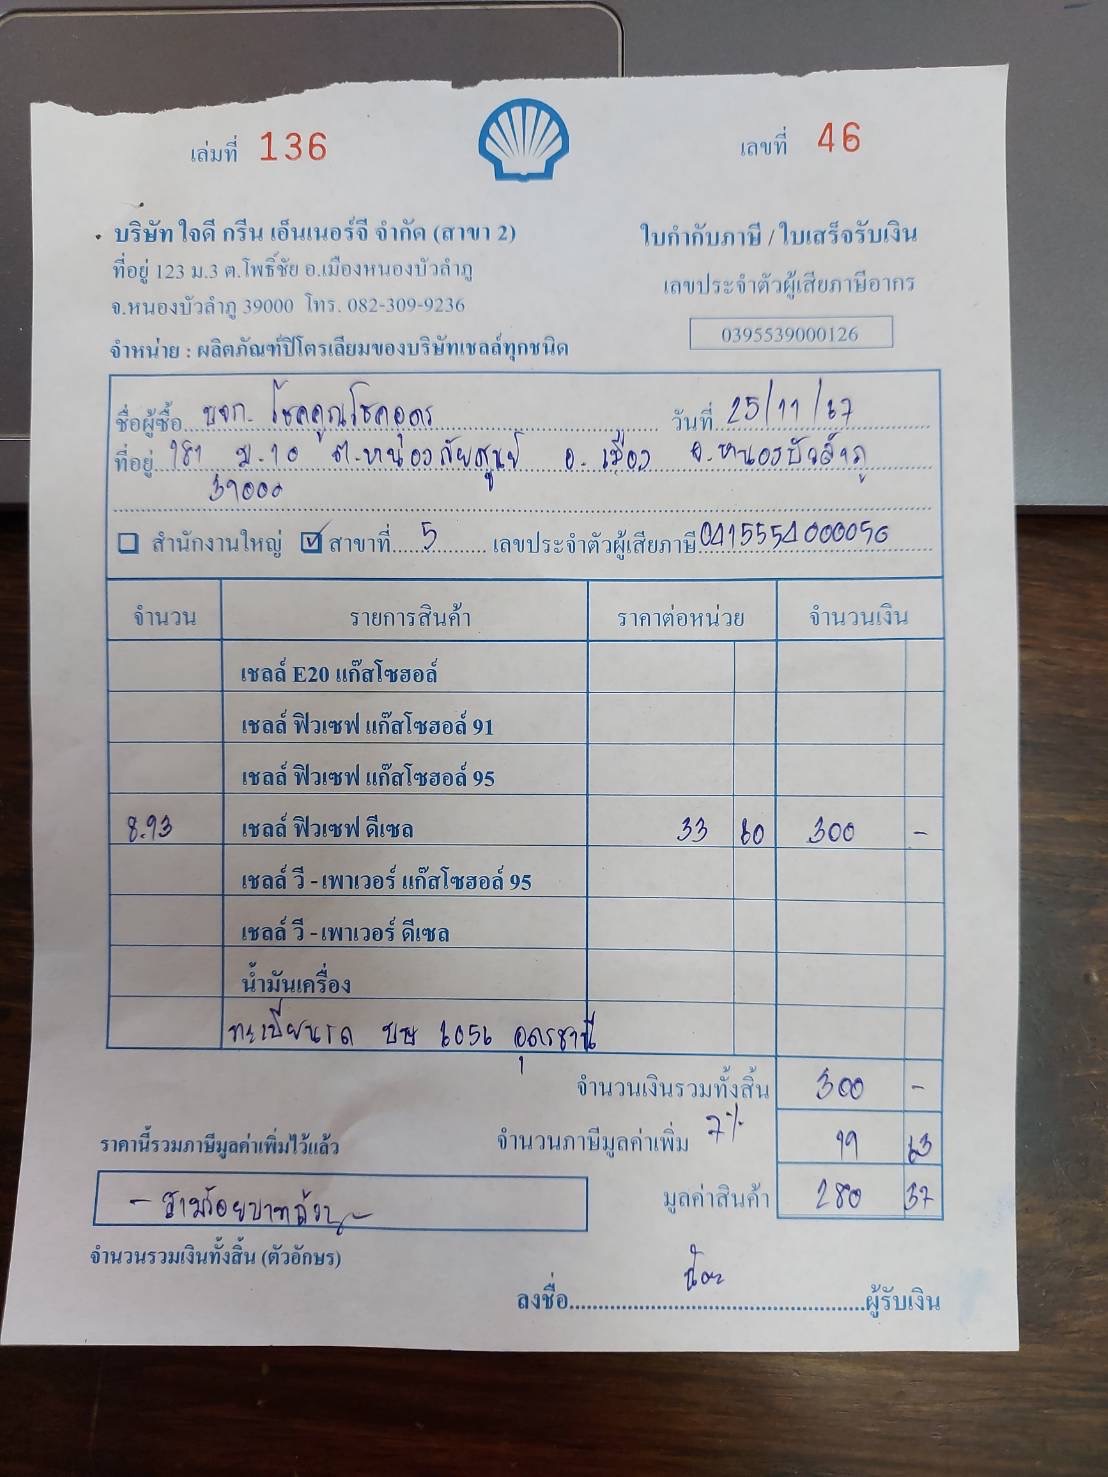 เล่มที่ 136
เลขที่ 46
บริษัท ใจดี กรีน เอ็นเนอร์จี จำกัด (สาขา 2)
ใบกำกับภาษี / ใบเสร็จรับเงิน
ที่อยู่ 123 ม.3 ต.โพธิ์ชัย อ.เมืองหนองบัวลำภู
เลขประจำตัวผู้เสียภาษีอากร
จ.หนองบัวลำภู 39000 โทร. 082-309-9236
0395539000126
จำหน่าย : ผลิตภัณฑ์ปิโตรเลียมของบริษัทเชลล์ทุกชนิด
ชื่อผู้ซื้อ บจก. โชคคูณโชคอุดร วันที่ 25/11/67
ที่อยู่ 181 ม.10 ต.หนองภัยศูนย์ อ.เมือง จ.หนองบัวลำภู
39000
สำนักงานใหญ่ ☑ สาขาที่ 5 เลขประจำตัวผู้เสียภาษี 0415554000056
จำนวน รายการสินค้า ราคาต่อหน่วย จำนวนเงิน
เชลล์ E20 แก๊สโซฮอล์
เชลล์ ฟิวเซฟ แก๊สโซฮอล์ 91
เชลล์ ฟิวเซฟ แก๊สโซฮอล์ 95
8.93 เชลล์ ฟิวเซฟ ดีเซล 33 60 300 -
เชลล์ วี - เพาเวอร์ แก๊สโซฮอล์ 95
เชลล์ วี - เพาเวอร์ ดีเซล
น้ำมันเครื่อง
ทะเบียนรถ บษ 6056 อุดรธานี
จำนวนเงินรวมทั้งสิ้น 300 -
ราคานี้รวมภาษีมูลค่าเพิ่มไว้แล้ว จำนวนภาษีมูลค่าเพิ่ม 7% 19 63
- สามร้อยบาทถ้วน - มูลค่าสินค้า 280 37
จำนวนรวมเงินทั้งสิ้น (ตัวอักษร)
ลงชื่อ ผู้รับเงิน